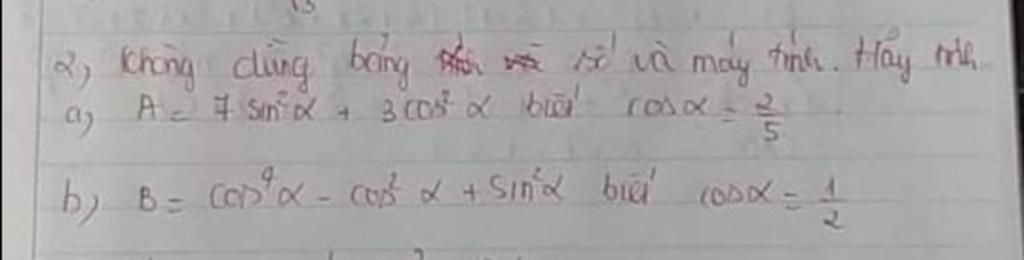 2, không dùng bảng số và máy tính. Hãy tính
a, A = 7 sin²α + 3 cos² α biết cosα = 2/5
b, B = cos⁴α - cos² α + sin²α biết cosα = 1/2